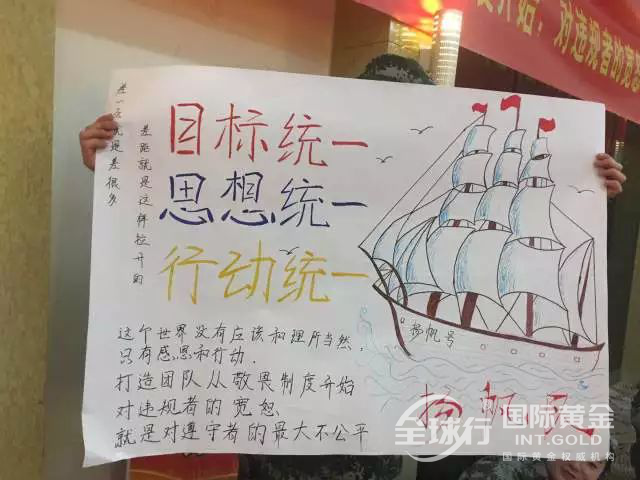 开始，对违规者的宽恕
差一点就是差很多
差距就是这样拉开的
目标统一
思想统一
行动统一
这个世界没有应该和理所当然，
只有感恩和行动．
打造团队从敬畏制度开始
对违规者的宽恕
就是对遵守者的最大不公平
扬帆号
扬帆
全球行
国际黄金
INT.GOLD
国际黄金权威机构